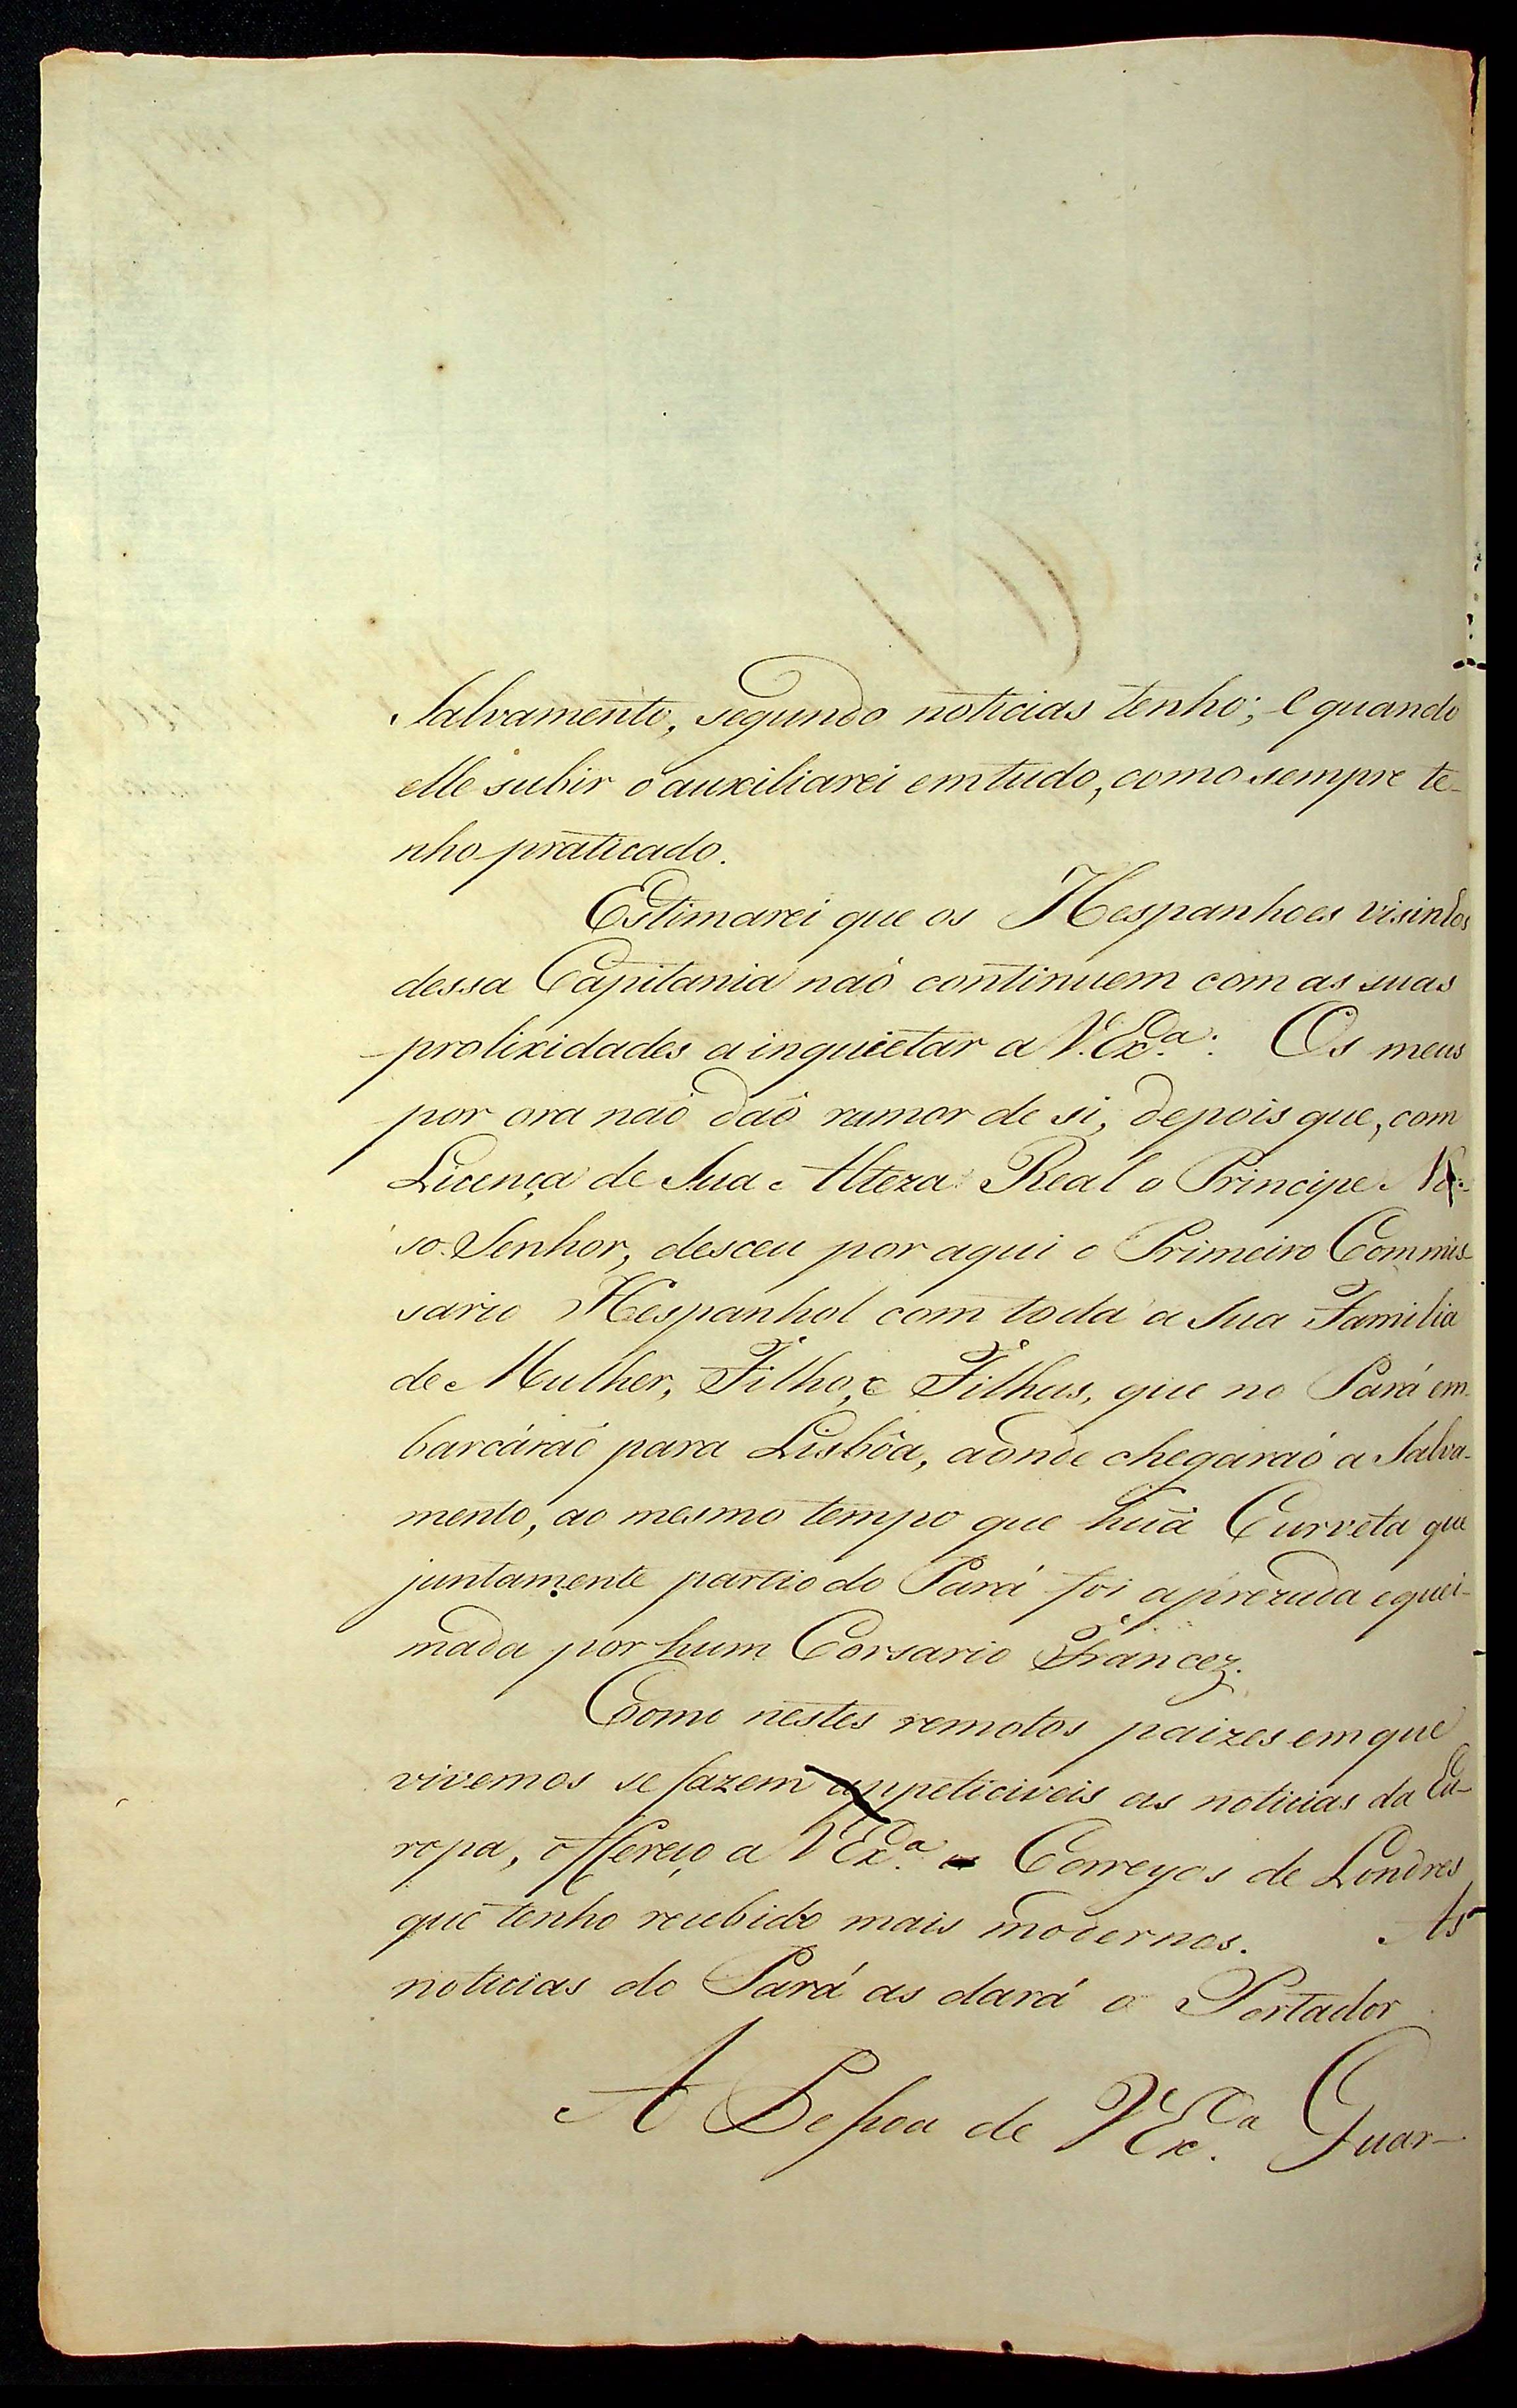 Salvamento, segundo noticias tenho; e quando
elle subir o auxiliarei em tudo, como sempre te-
nho praticado.
Estimarei que os Hespanhoes visinhos
dessa Capitania naõ continuem com as suas
prolixidades a inquietar a V. Ex.ª: Os meus
por ora naõ daõ rumor de si, depois que, com
Licença de Sua Alteza Real o Principe
so Senhor, desceu por aqui o Primeiro Commis-
sario Hespanhol com toda a sua Familia
de Mulher, Filho, e Filhas, que no Pará em-
barcáraõ para Lisbôa, aonde chegaraõ a Salva-
mento, ao mesmo tempo que huã Curveta que
juntamente partio do Pará foi aprezada e quei-
mada por hum Corsario Francez.
Como nestes remotos paizes em que
vivemos se fazem appeticiveis as noticias da Eu-
ropa, offereço a V Ex.ª os Correyos de Londres
que tenho recebido mais modernos. As
noticias do Pará as dará o Portador
A Pessoa de V Ex.ª Guar-